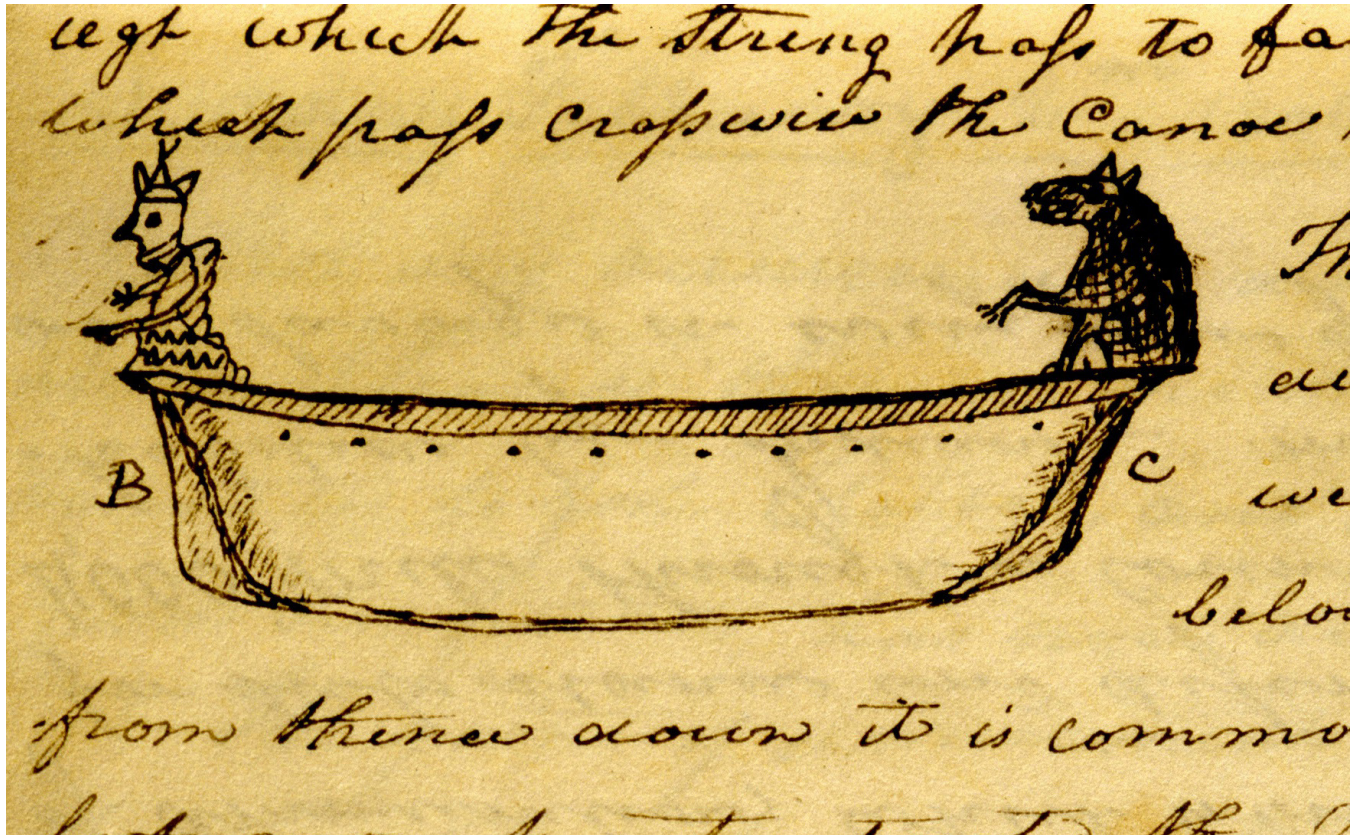 ugh which the string paſs to fa
which paſs Croſswise the Canoe
Th
B C
we
below
from thence down it is commo